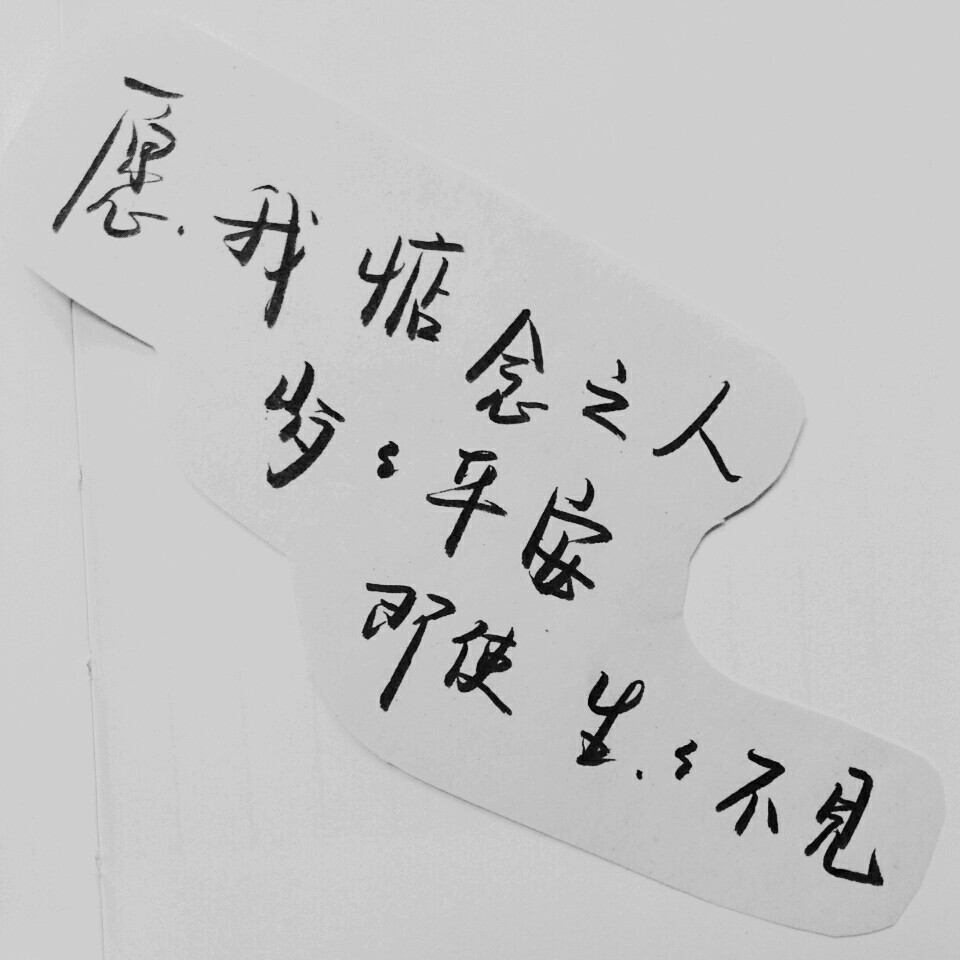 愿我惦念之人
岁々平安
即使生々不见